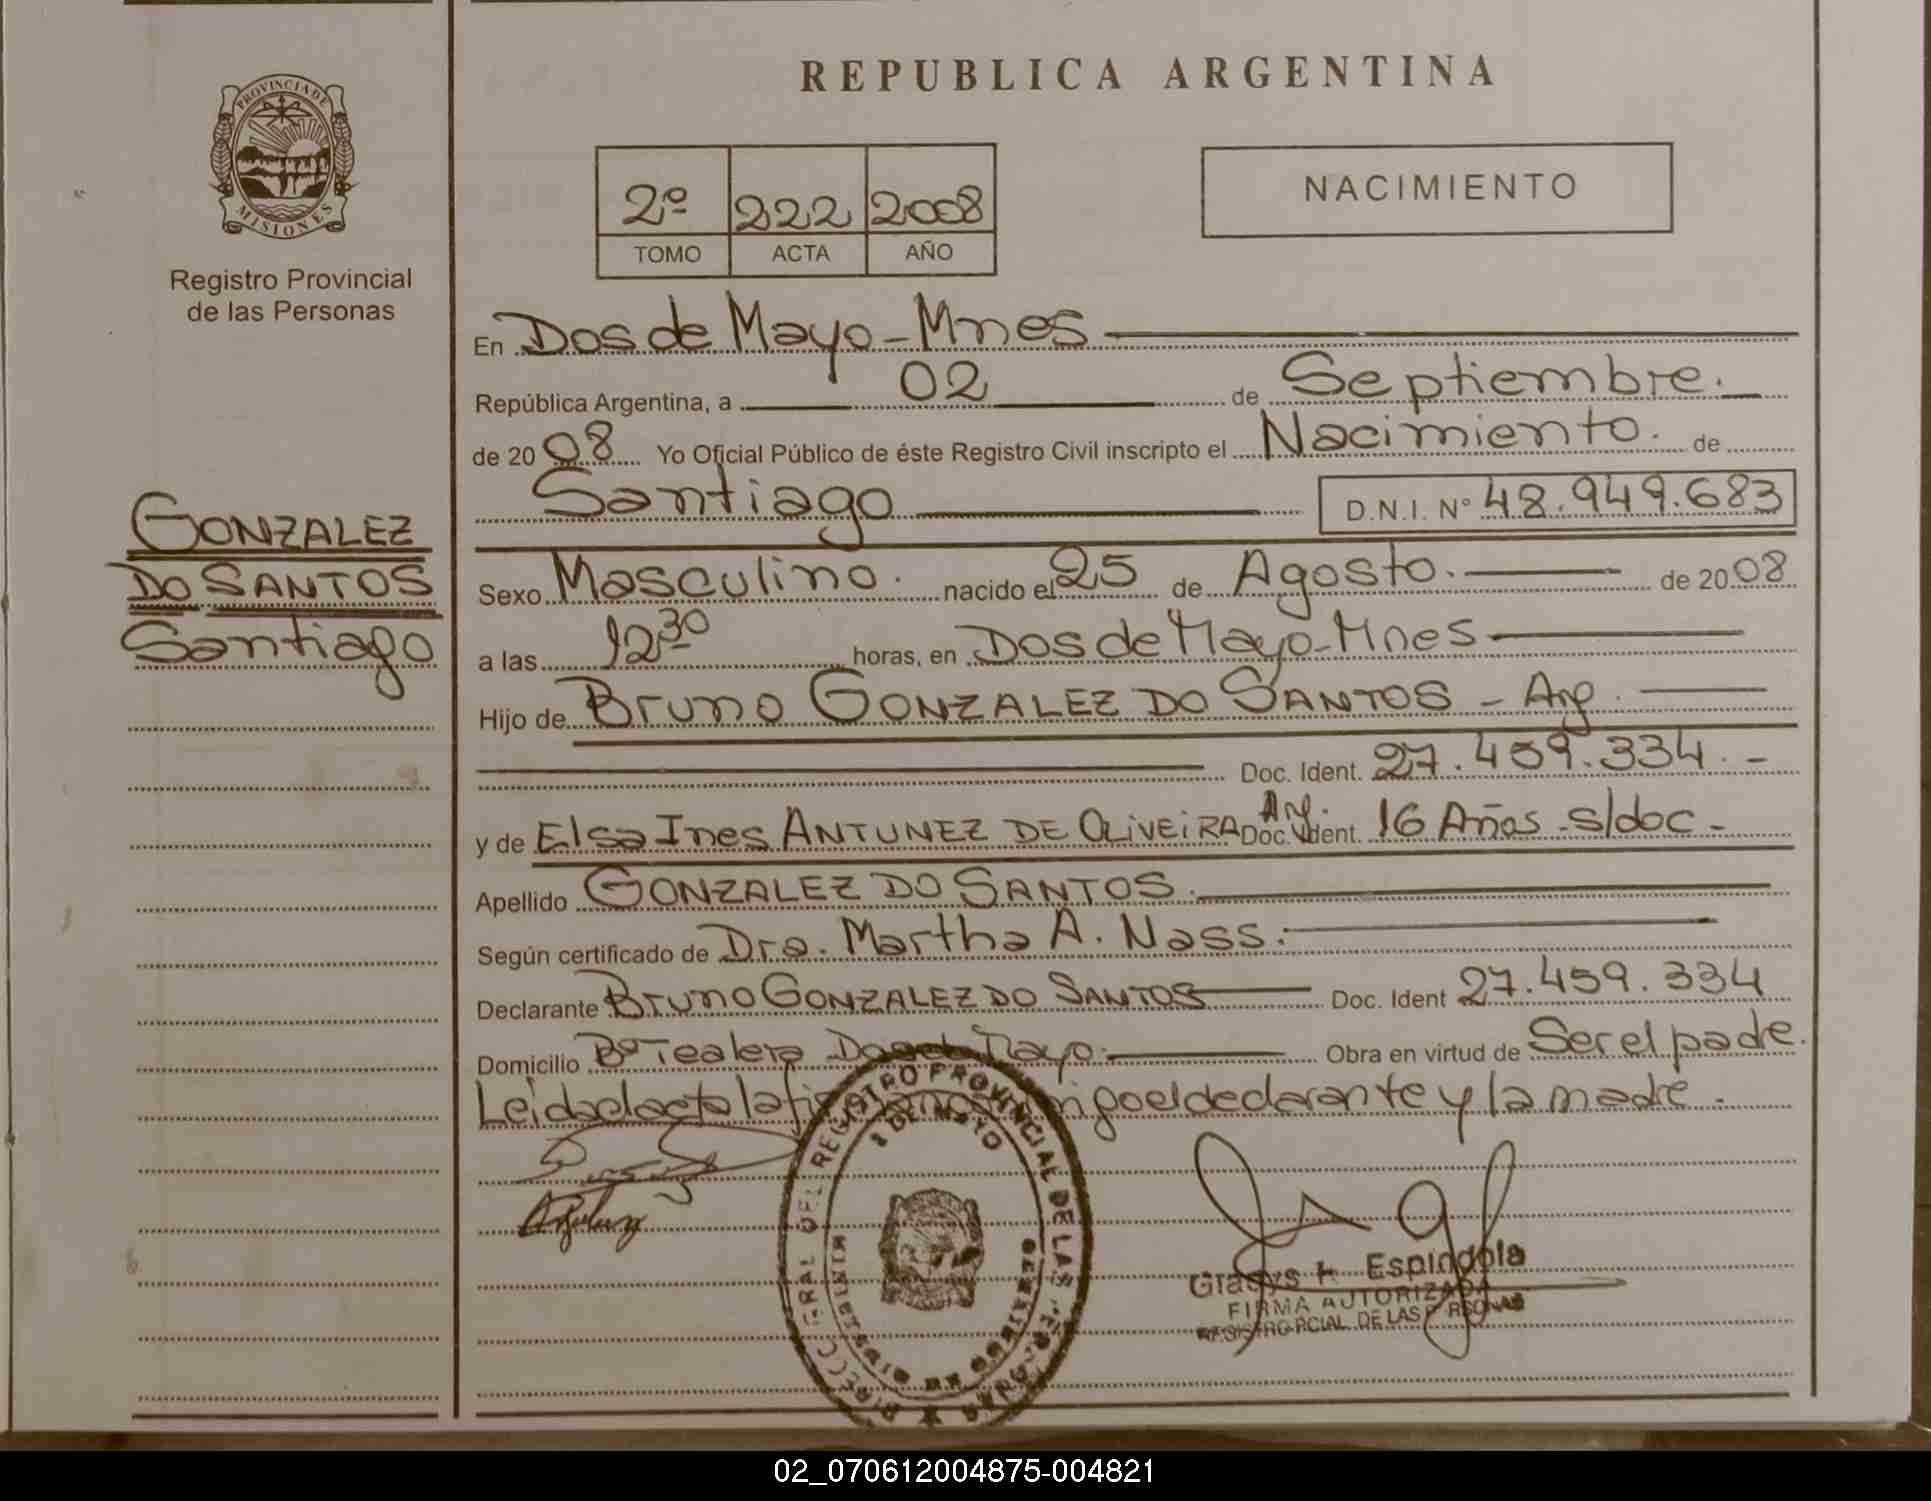 PROVINCIA DE
MISIONES
Registro Provincial
de las Personas
GONZALEZ
DO SANTOS
Santiago
REPUBLICA ARGENTINA
2º 222 2008
TOMO ACTA AÑO
NACIMIENTO
En Dos de Mayo - Mnes
República Argentina, a 02 de Septiembre.
de 2008 Yo Oficial Público de éste Registro Civil inscripto el Nacimiento. de
Santiago D.N.I. Nº 48.949.683
Sexo Masculino. nacido el 25 de Agosto. de 2008
a las 12 30 horas, en Dos de Mayo - Mnes
Hijo de Bruno GONZALEZ DO SANTOS - Arg.
Doc. Ident. 27.459.334. -
y de Elsa Ines ANTUNEZ DE OLIVEIRA Arg. Doc. Ident. 16 Años - s/doc -
Apellido GONZALEZ DO SANTOS.
Según certificado de Dra. Martha A. Nass.
Declarante Bruno GONZALEZ DO SANTOS Doc. Ident 27.459.334
Domicilio Bº Tealera Dos de Mayo. Obra en virtud de Ser el padre.
Leida el acta la conmigo el declarante y la madre.
REGISTRO PROVINCIAL DE LAS PERSONAS
2 DE MAYO
MISIONES
Gladys H. Espindola
FIRMA AUTORIZADA
REGISTRO PCIAL. DE LAS PERSONAS
02_070612004875-004821